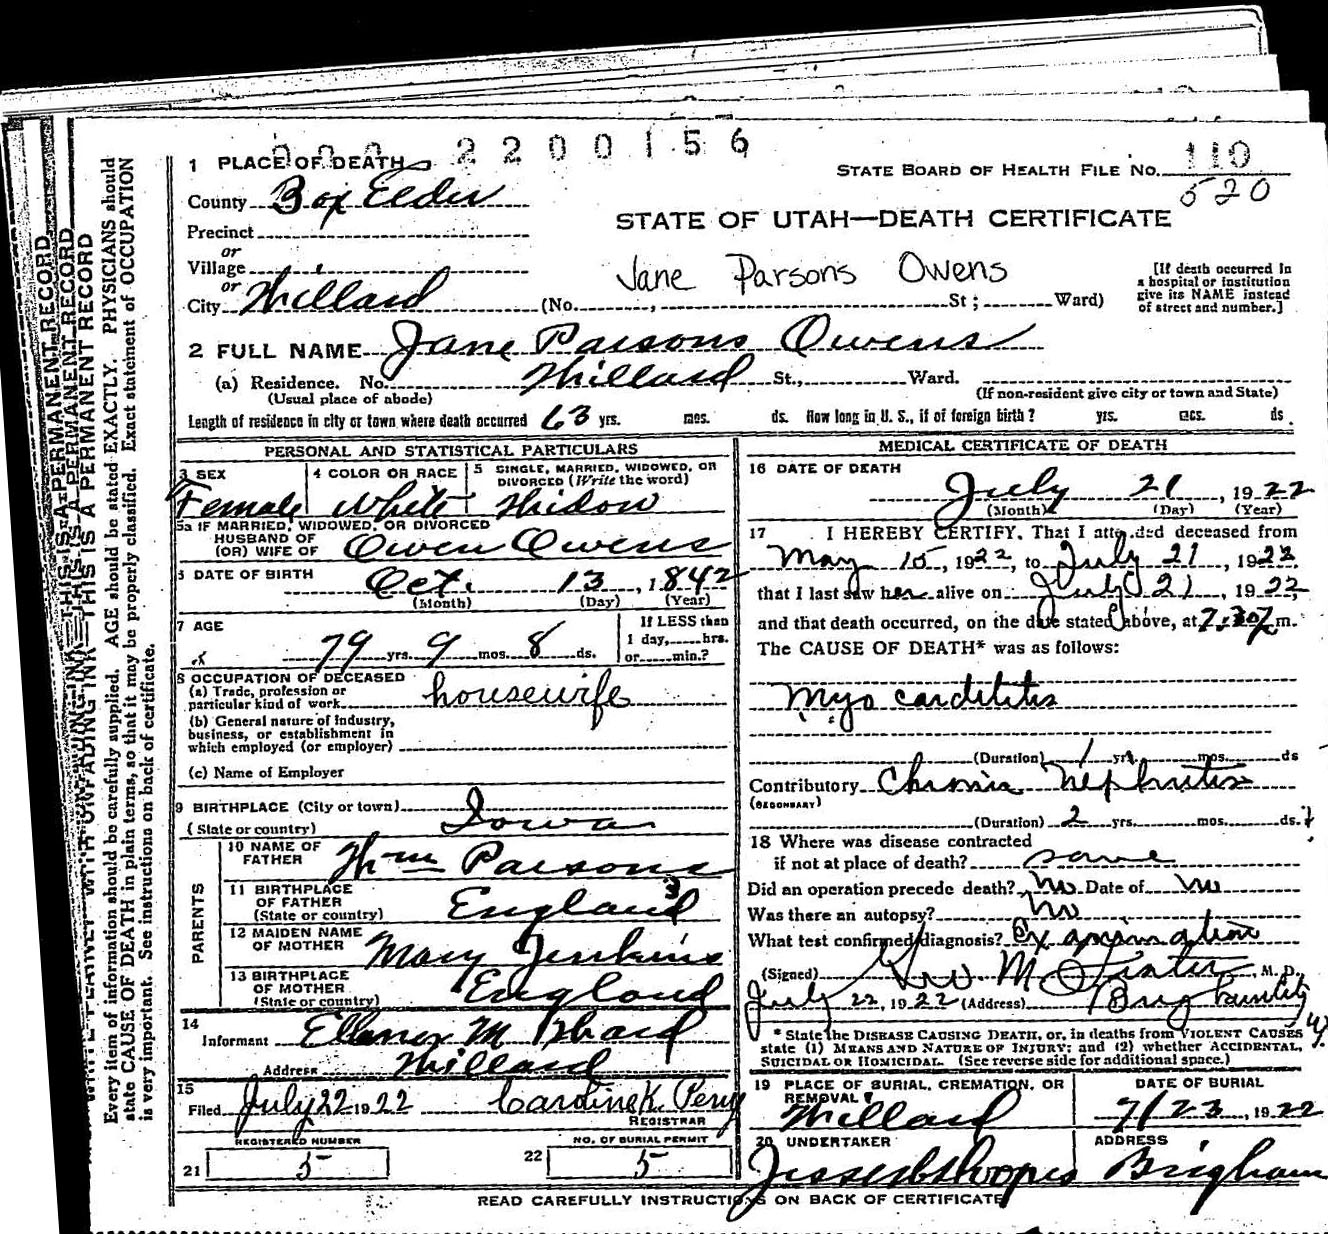 2200156
1 PLACE OF DEATH
STATE BOARD OF HEALTH FILE No. 110
520
County Box Elder
STATE OF UTAH—DEATH CERTIFICATE
Precinct
or
Village
or
City Willard
Jane Parsons Owens
(No. St ; Ward)
[If death occurred in
a hospital or institution
give its NAME instead
of street and number.]
2 FULL NAME Jane Parsons Owens
(a) Residence. No. Willard St., Ward.
(Usual place of abode)
(If non-resident give city or town and State)
Length of residence in city or town where death occurred 63 yrs. mos. ds. How long in U. S., if of foreign birth? yrs. mos. ds.
PERSONAL AND STATISTICAL PARTICULARS
3 SEX
Female
4 COLOR OR RACE
White
5 SINGLE, MARRIED, WIDOWED, OR
DIVORCED (Write the word)
Widow
5a IF MARRIED, WIDOWED, OR DIVORCED
HUSBAND OF
(OR) WIFE OF Owen Owens
6 DATE OF BIRTH Oct. 13, 1842
(Month) (Day) (Year)
7 AGE
79 yrs. 9 mos. 8 ds.
If LESS than
1 day, hrs.
or min.?
8 OCCUPATION OF DECEASED
(a) Trade, profession or
particular kind of work housewife
(b) General nature of Industry,
business, or establishment in
which employed (or employer)
(c) Name of Employer
9 BIRTHPLACE (City or town)
(State or country) Iowa
PARENTS
10 NAME OF
FATHER Wm Parsons
11 BIRTHPLACE
OF FATHER
(State or country) England
12 MAIDEN NAME
OF MOTHER Mary Jenkins
13 BIRTHPLACE
OF MOTHER
(State or country) England
14
Informant Ellenor M
Address Willard
15
Filed July 22 1922 Caroline K. Perry
REGISTRAR
REGISTERED NUMBER
21 5
NO. OF BURIAL PERMIT
22 5
MEDICAL CERTIFICATE OF DEATH
16 DATE OF DEATH
July 21, 1922
(Month) (Day) (Year)
17 I HEREBY CERTIFY, That I attended deceased from
May 15, 1922, to July 21, 1922
that I last saw her alive on July 21, 1922,
and that death occurred, on the date stated above, at 7:30 m.
The CAUSE OF DEATH* was as follows:
Myo carditites
(Duration) 1 yrs. mos. ds
Contributory Chronic Nephritis
(SECONDARY)
(Duration) 2 yrs. mos. ds.
18 Where was disease contracted
if not at place of death? same
Did an operation precede death? no Date of no
Was there an autopsy? no
What test confirmed diagnosis? Examination
(Signed) M. D.
July 22, 1922 (Address) Brigham City
* State the DISEASE CAUSING DEATH, or, in deaths from VIOLENT CAUSES
state (1) MEANS AND NATURE OF INJURY; and (2) whether ACCIDENTAL,
SUICIDAL OR HOMICIDAL. (See reverse side for additional space.)
19 PLACE OF BURIAL, CREMATION, OR
REMOVAL
Willard
DATE OF BURIAL
7/23, 1922
20 UNDERTAKER
ADDRESS
Brigham
READ CAREFULLY INSTRUCTIONS ON BACK OF CERTIFICATE
WRITE PLAINLY WITH UNFADING INK—THIS IS A PERMANENT RECORD
Every item of information should be carefully supplied. AGE should be stated EXACTLY. PHYSICIANS should
state CAUSE OF DEATH in plain terms, so that it may be properly classified. Exact statement of OCCUPATION
is very important. See instructions on back of certificate.